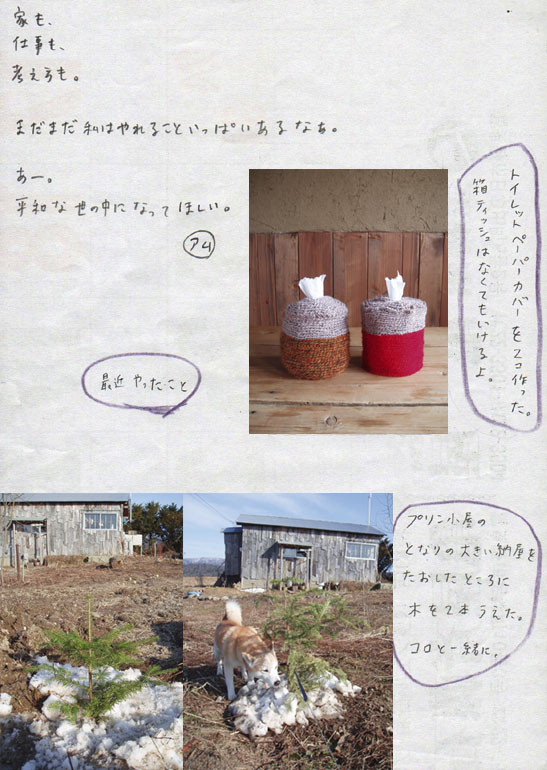 家も、
仕事も、
考え方も。
まだまだ私はやれることいっぱいあるなぁ。
あー。
平和な世の中になってほしい。
アム
トイレットペーパーカバーを2コ作った。
箱ティッシュはなくてもいけるよ。
最近やったこと
プリン小屋の
となりの大きい納屋を
たおしたところに
木を2本うえた。
コロと一緒に。